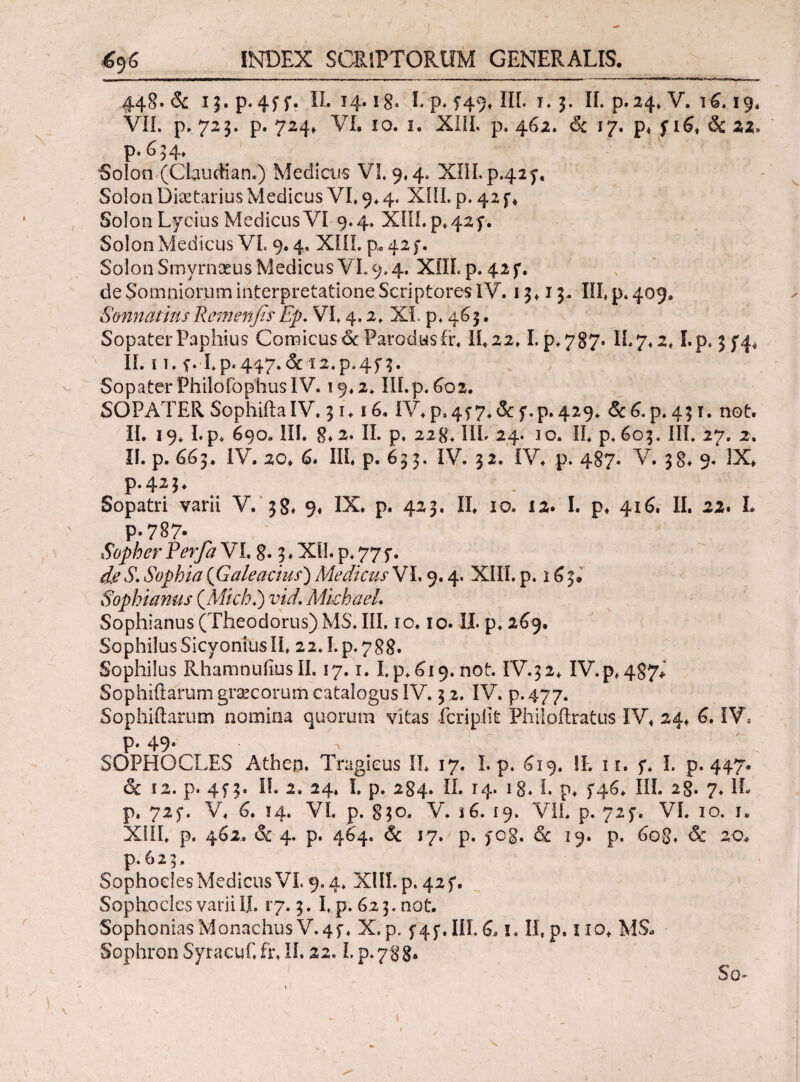 696 INDEX SCRIPTORUM GENERALIS.
448. & 13. p. 455. II. 14. 18. I. p. 549. III. 1. 3. II. p. 24. V. 16. 19.
VII. p. 723. p. 724. VI. 10. 1. XIII. p. 462. & 17. p. 516. & 22.
p. 634.
Solon (Claudian.) Medicus VI. 9. 4. XIII. p. 425.
Solon Diætarius Medicus VI. 9. 4. XIII. p. 425.
Solon Lycius Medicus VI 9. 4. XIII. p. 425.
Solon Medicus VI. 9. 4. XIII. p. 425.
Solon Smyrnæus Medicus VI. 9. 4. XIII. p. 425.
de Somniorum interpretatione Scriptores IV. 13. 13. III. p. 409.
Sonnatius Remensis Ep. VI. 4. 2. XI. p. 463.
Sopater Paphius Comicus & Parodus fr. II. 22. I. p. 787. II. 7. 2. I. p. 354.
II. 11. 5. I. p. 447. & 12. p. 453.
Sopater Philosophus IV. 19. 2. III. p. 602.
SOPATER Sophista IV. 31. 16. IV. p. 457. & 5. p. 429. & 6. p. 431. not.
II. 19. I. p. 690. III. 8. 2. II. p. 228. III. 24. 10. II. p. 603. III. 27. 2.
II. p. 663. IV. 20. 6. III. p. 633. IV. 32. IV. p. 487. V. 38. 9. IX.
p. 423.
Sopatri varii V. 38. 9. IX. p. 423. II. 10. 12. I. p. 416. II. 22. I.
p. 787.
Sopher Persa VI. 8. 3. XII. p. 775.
de S. Sophia (Galeacius) Medicus VI. 9. 4. XIII. p. 163.
Sophianus (Mich.) vid. Michael.
Sophianus (Theodorus) MS. III. 10. 10. II. p. 269.
Sophilus Sicyonius II. 22. I. p. 788.
Sophilus Rhamnusius II. 17. 1. I. p. 619. not. IV. 32. IV. p. 487.
Sophistarum græcorum catalogus IV. 32. IV. p. 477.
Sophistarum nomina quorum vitas scripsit Philostratus IV. 24. 6. IV.
p. 49.
SOPHOCLES Athen. Tragicus II. 17. I. p. 619. II. 11. 5. I. p. 447.
& 12. p. 453. II. 2. 24. I. p. 284. II. 14. 18. I. p. 546. III. 28. 7. II.
p. 725. V. 6. 14. VI. p. 830. V. 16. 19. VII. p. 725. VI. 10. 1.
XIII. p. 462. & 4. p. 464. & 17. p. 508. & 19. p. 608. & 20.
p. 623.
Sophocles Medicus VI. 9. 4. XIII. p. 425.
Sophocles varii II. 17. 3. I. p. 623. not.
Sophonias Monachus V. 45. X. p. 545. III. 6. 1. II. p. 110. MS.
Sophron Syracus. fr. II. 22. I. p. 788.
So-